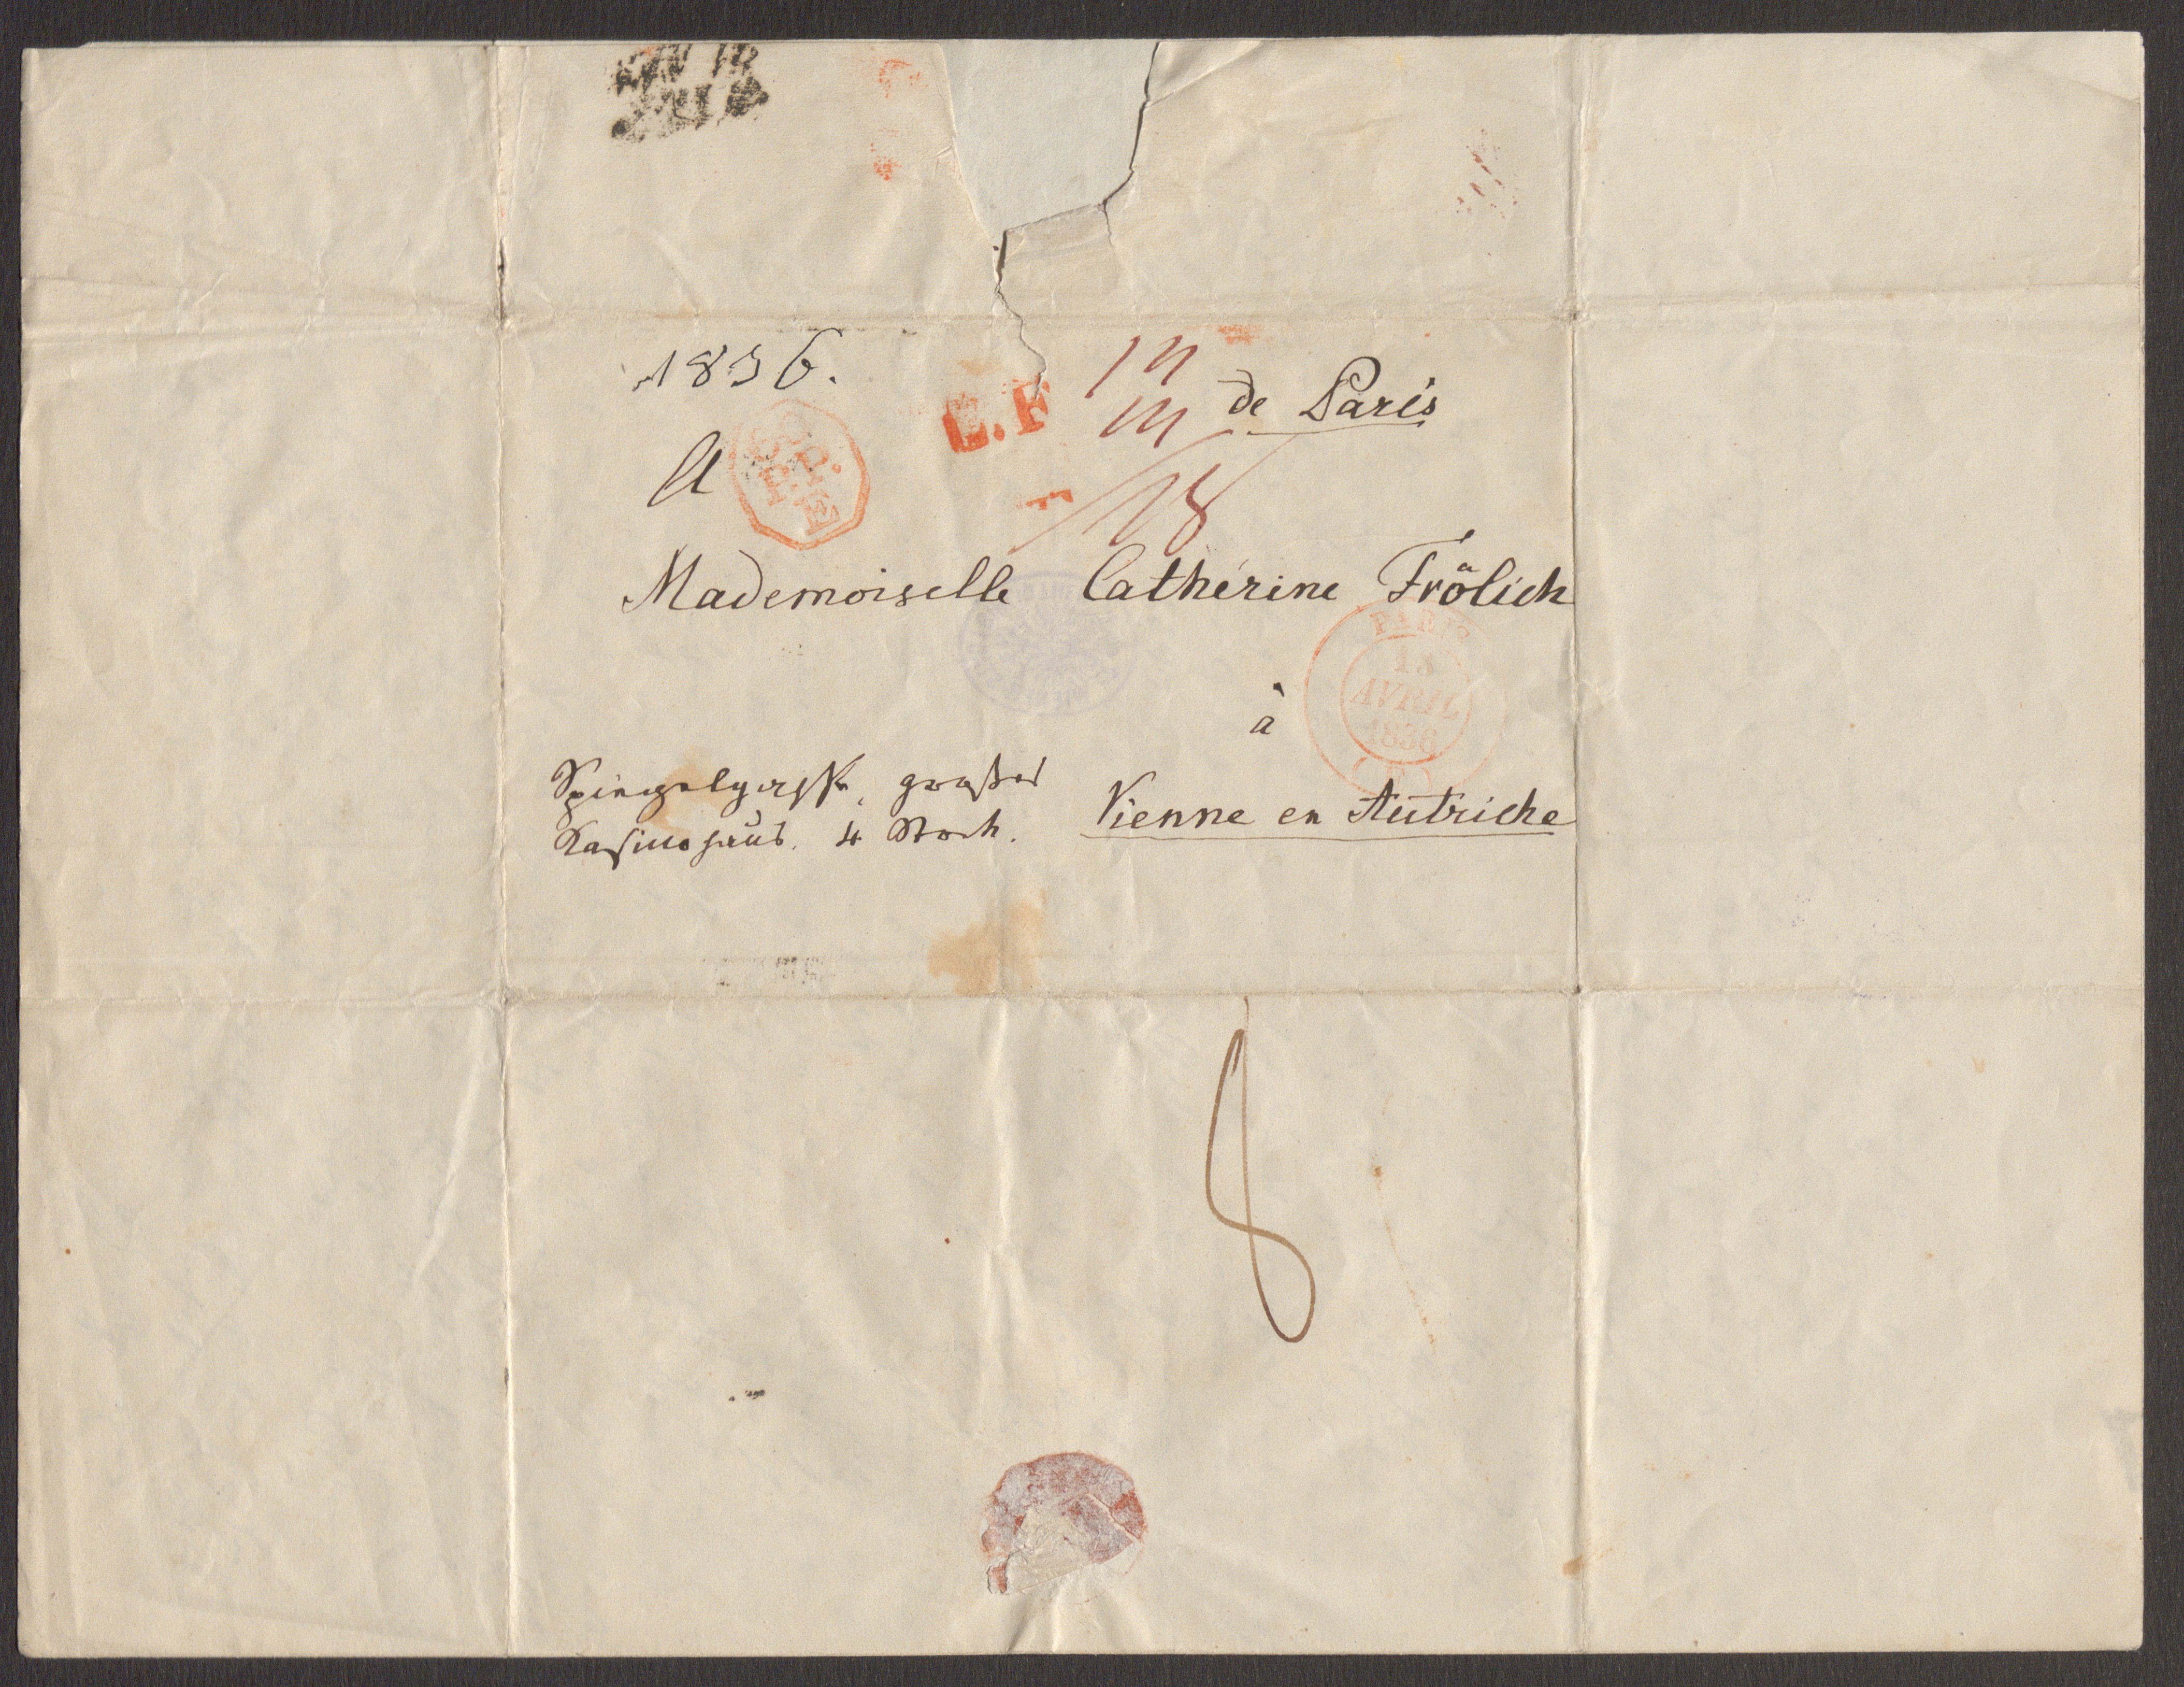 1836.
L.F
de Paris
A
F.E
18
Mademoiselle Cathérine Frölich
PARIS
13
AVRIL
1836
à
Spiegelgasse, großes
Kasinohaus. 4 Stock.
Vienne en Autriche
8